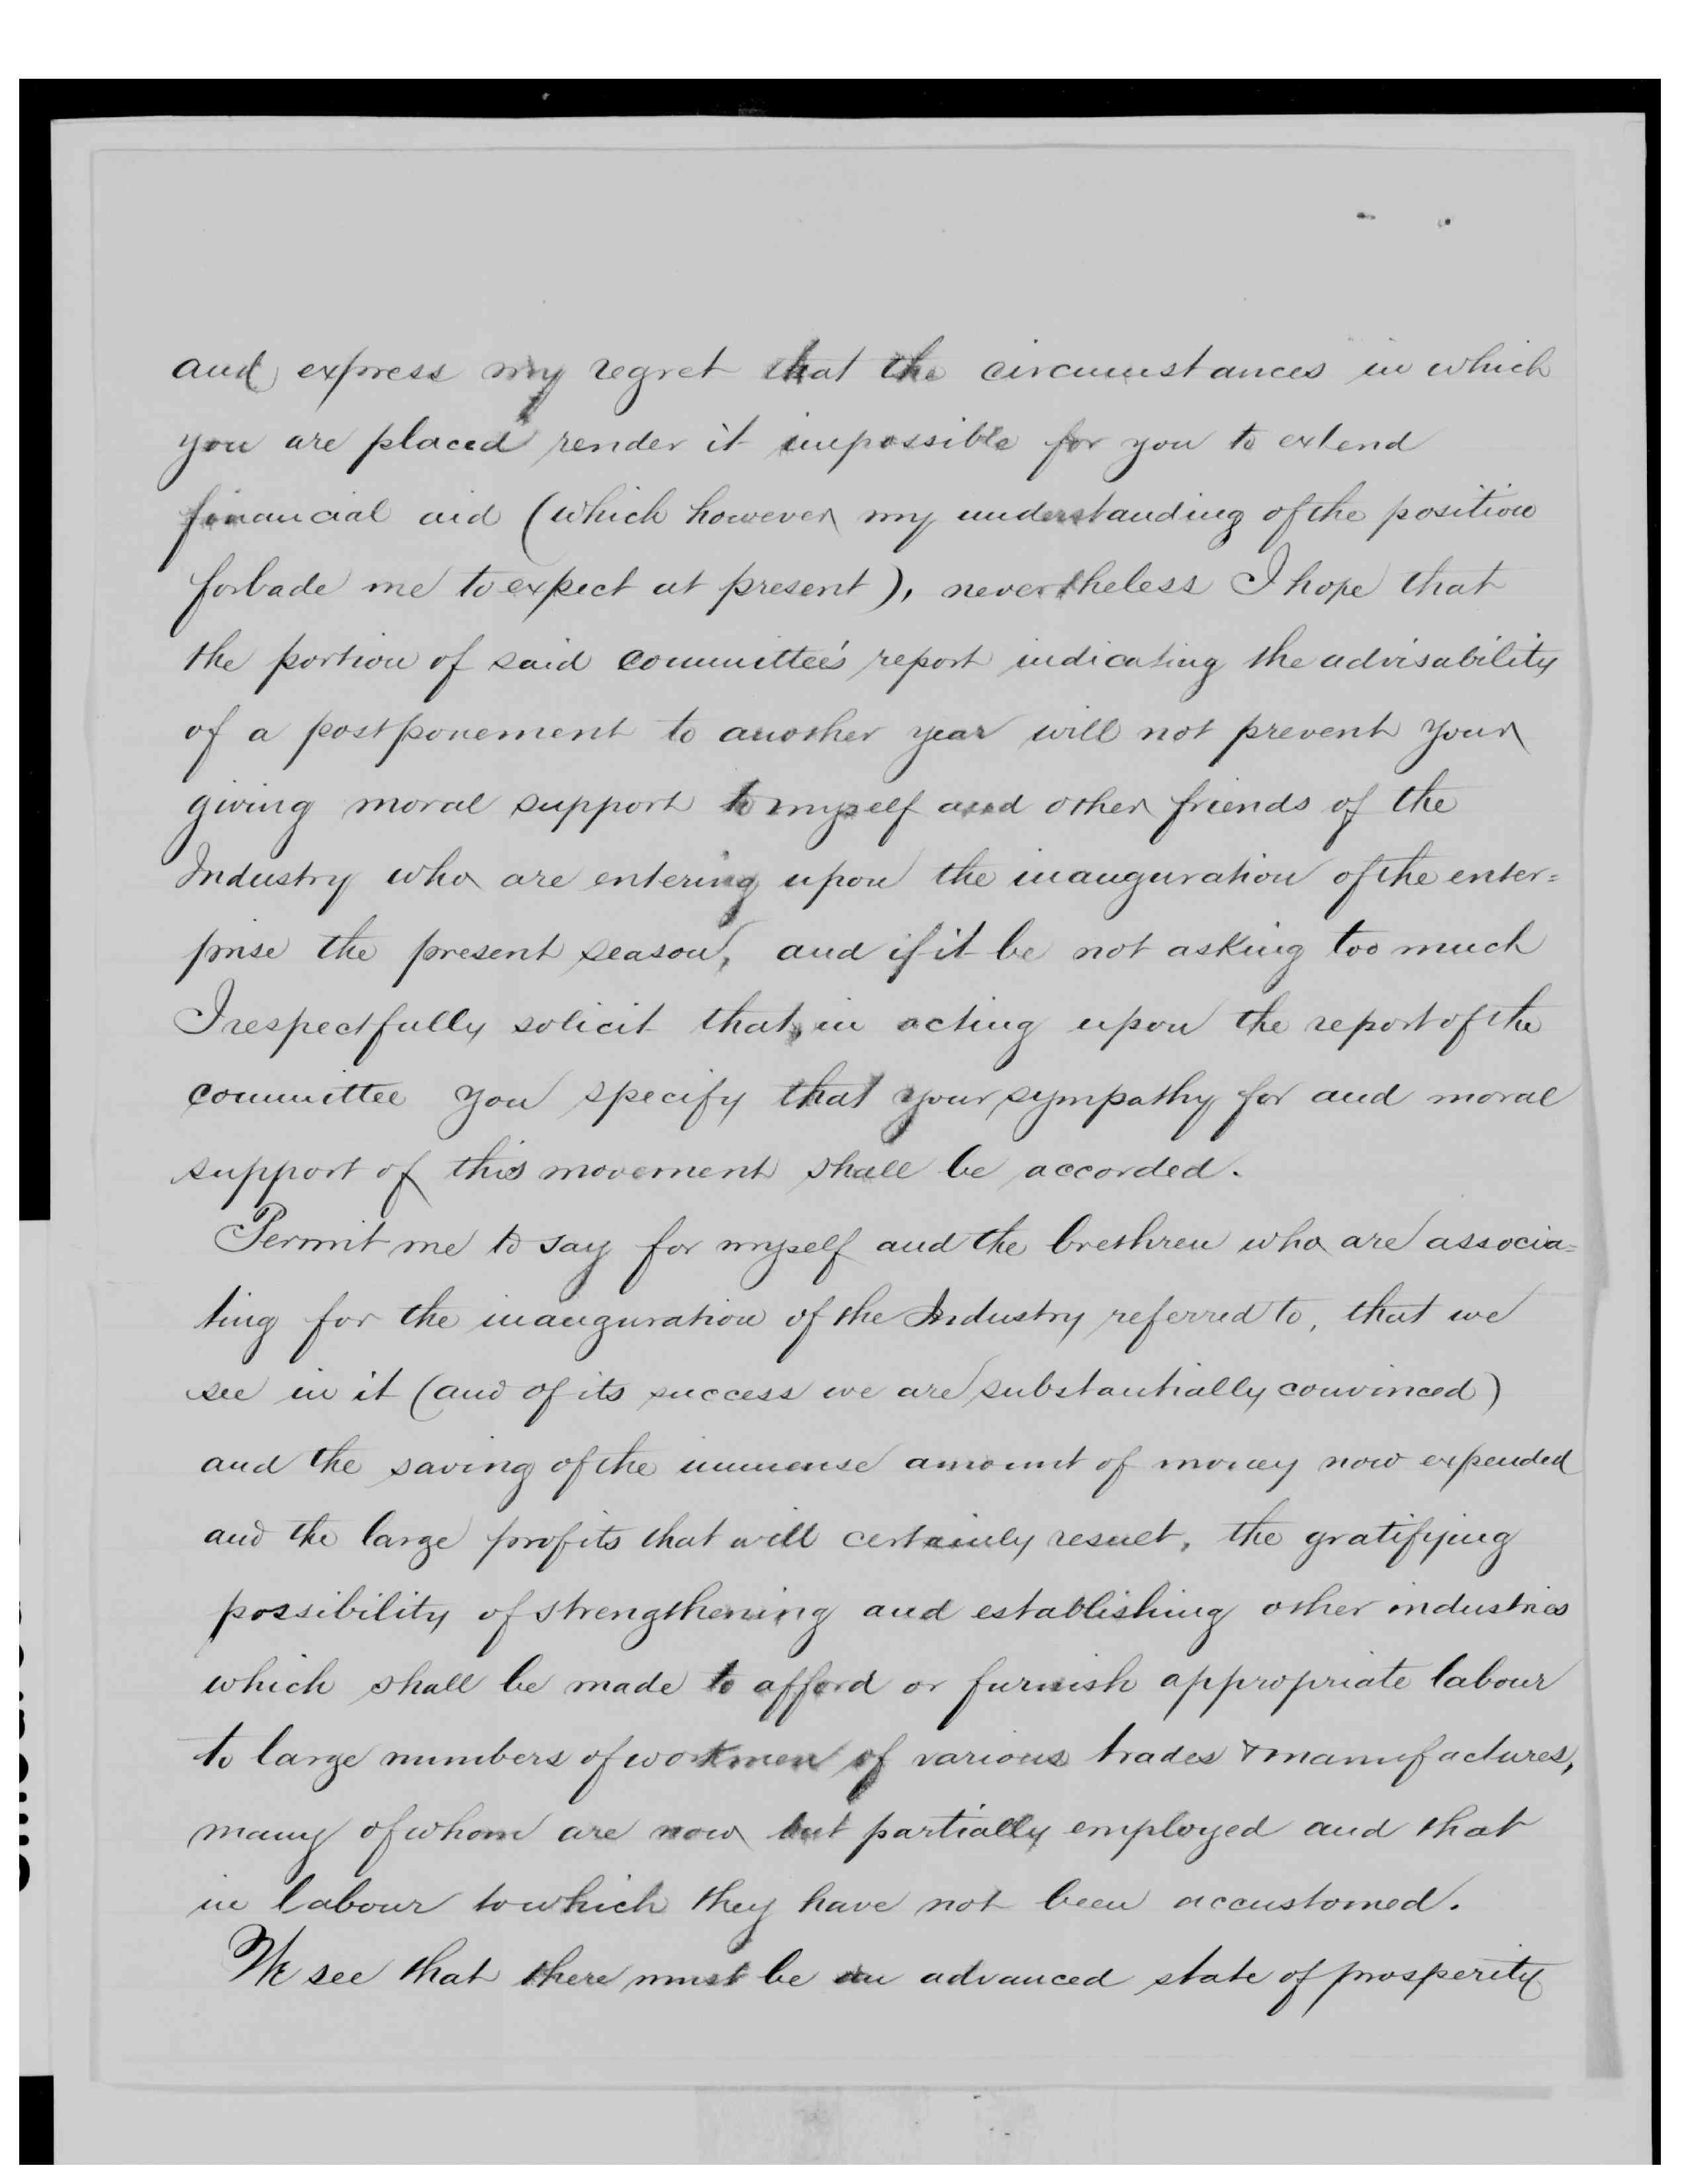 and express my regret that the circumstances in which
you are placed render it impossible for you to extend
financial aid (which however my understanding of the position
forbade me to expect at present), nevertheless I hope that
the portion of said committee's report indicating the advisability
of a postponement to another year will not prevent your
giving moral support to myself and other friends of the
Industry who are entering upon the inauguration of the enter=
prise the present season, and if it be not asking too much
I respectfully solicit that, in acting upon the report of the
committee you specify that your sympathy for and moral
support of this movement shall be accorded.
Permit me to say for myself and the brethren who are associa=
ting for the inauguration of the Industry referred to, that we
see in it (and of its success we are substantially convinced)
and the saving of the immense amount of money now expended
and the large profits that will certainly result, the gratifying
possibility of strengthening and establishing other industries
which shall be made to afford or furnish appropriate labour
to large numbers of workmen of various trades & manufactures,
many of whom are now but partially employed and that
in labour to which they have not been accustomed.
We see that there must be an advanced state of prosperity